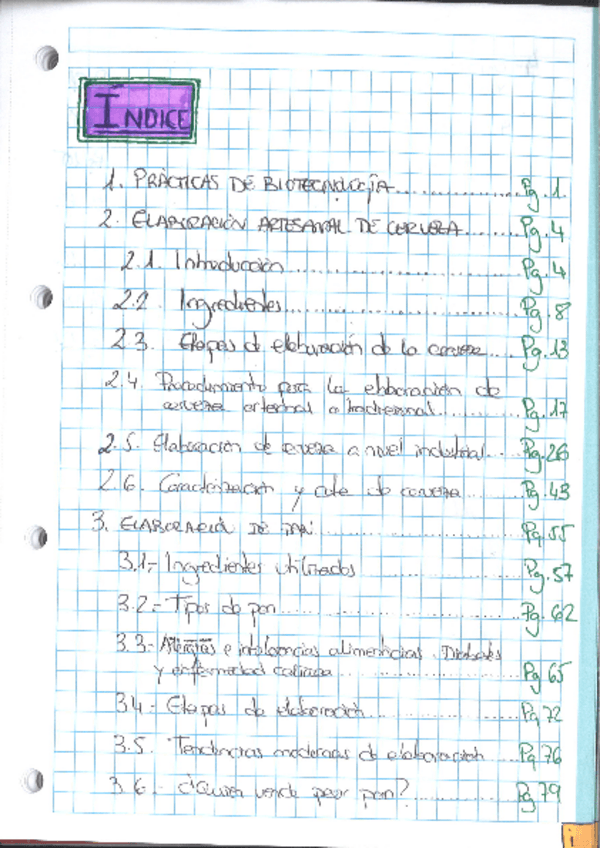 ÍNDICE
1. PRÁCTICAS DE BIOTECNOLOGÍA .................. Pg. 1.
2. ELABORACIÓN ARTESANAL DE CERVEZA ....... Pg. 4
2.1. Introducción .................. Pg. 4
2.2. Ingredientes .................. Pg. 8
2.3. Etapas de elaboración de la cerveza ... Pg. 13
2.4. Procedimiento para la elaboración de
cerveza artesanal o tradicional .......... Pg. 17
2.5. Elaboración de cerveza a nivel industrial ... Pg. 26
2.6. Caracterización y cata de cerveza ....... Pg. 43
3. ELABORACIÓN DE PAN .................. Pg. 55
3.1.- Ingredientes utilizados .................. Pg. 57
3.2.- Tipos de pan .................. Pg. 62
3.3.- Alergias e intolerancias alimenticias. Diabetes
y enfermedad celiaca .................. Pg 65
3.4.- Etapas de elaboración .................. Pg 72
3.5. Tendencias modernas de elaboración ... Pg 76
3.6.- ¿Quien vende peor pan? .......... Pg 79
i